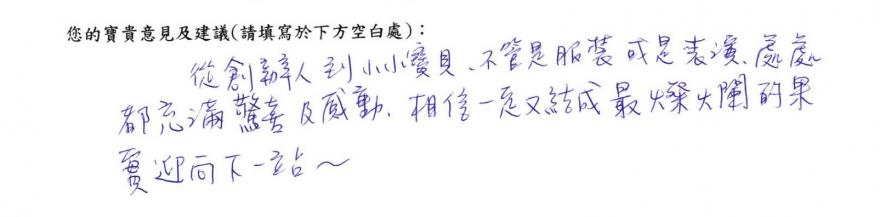 您的寶貴意見及建議(請填寫於下方空白處)：
從創辦人到小小寶貝、不管是服裝或是表演、處處
都充滿驚喜及感動、相信一定又結成最燦爛的果
實迎向下一站～